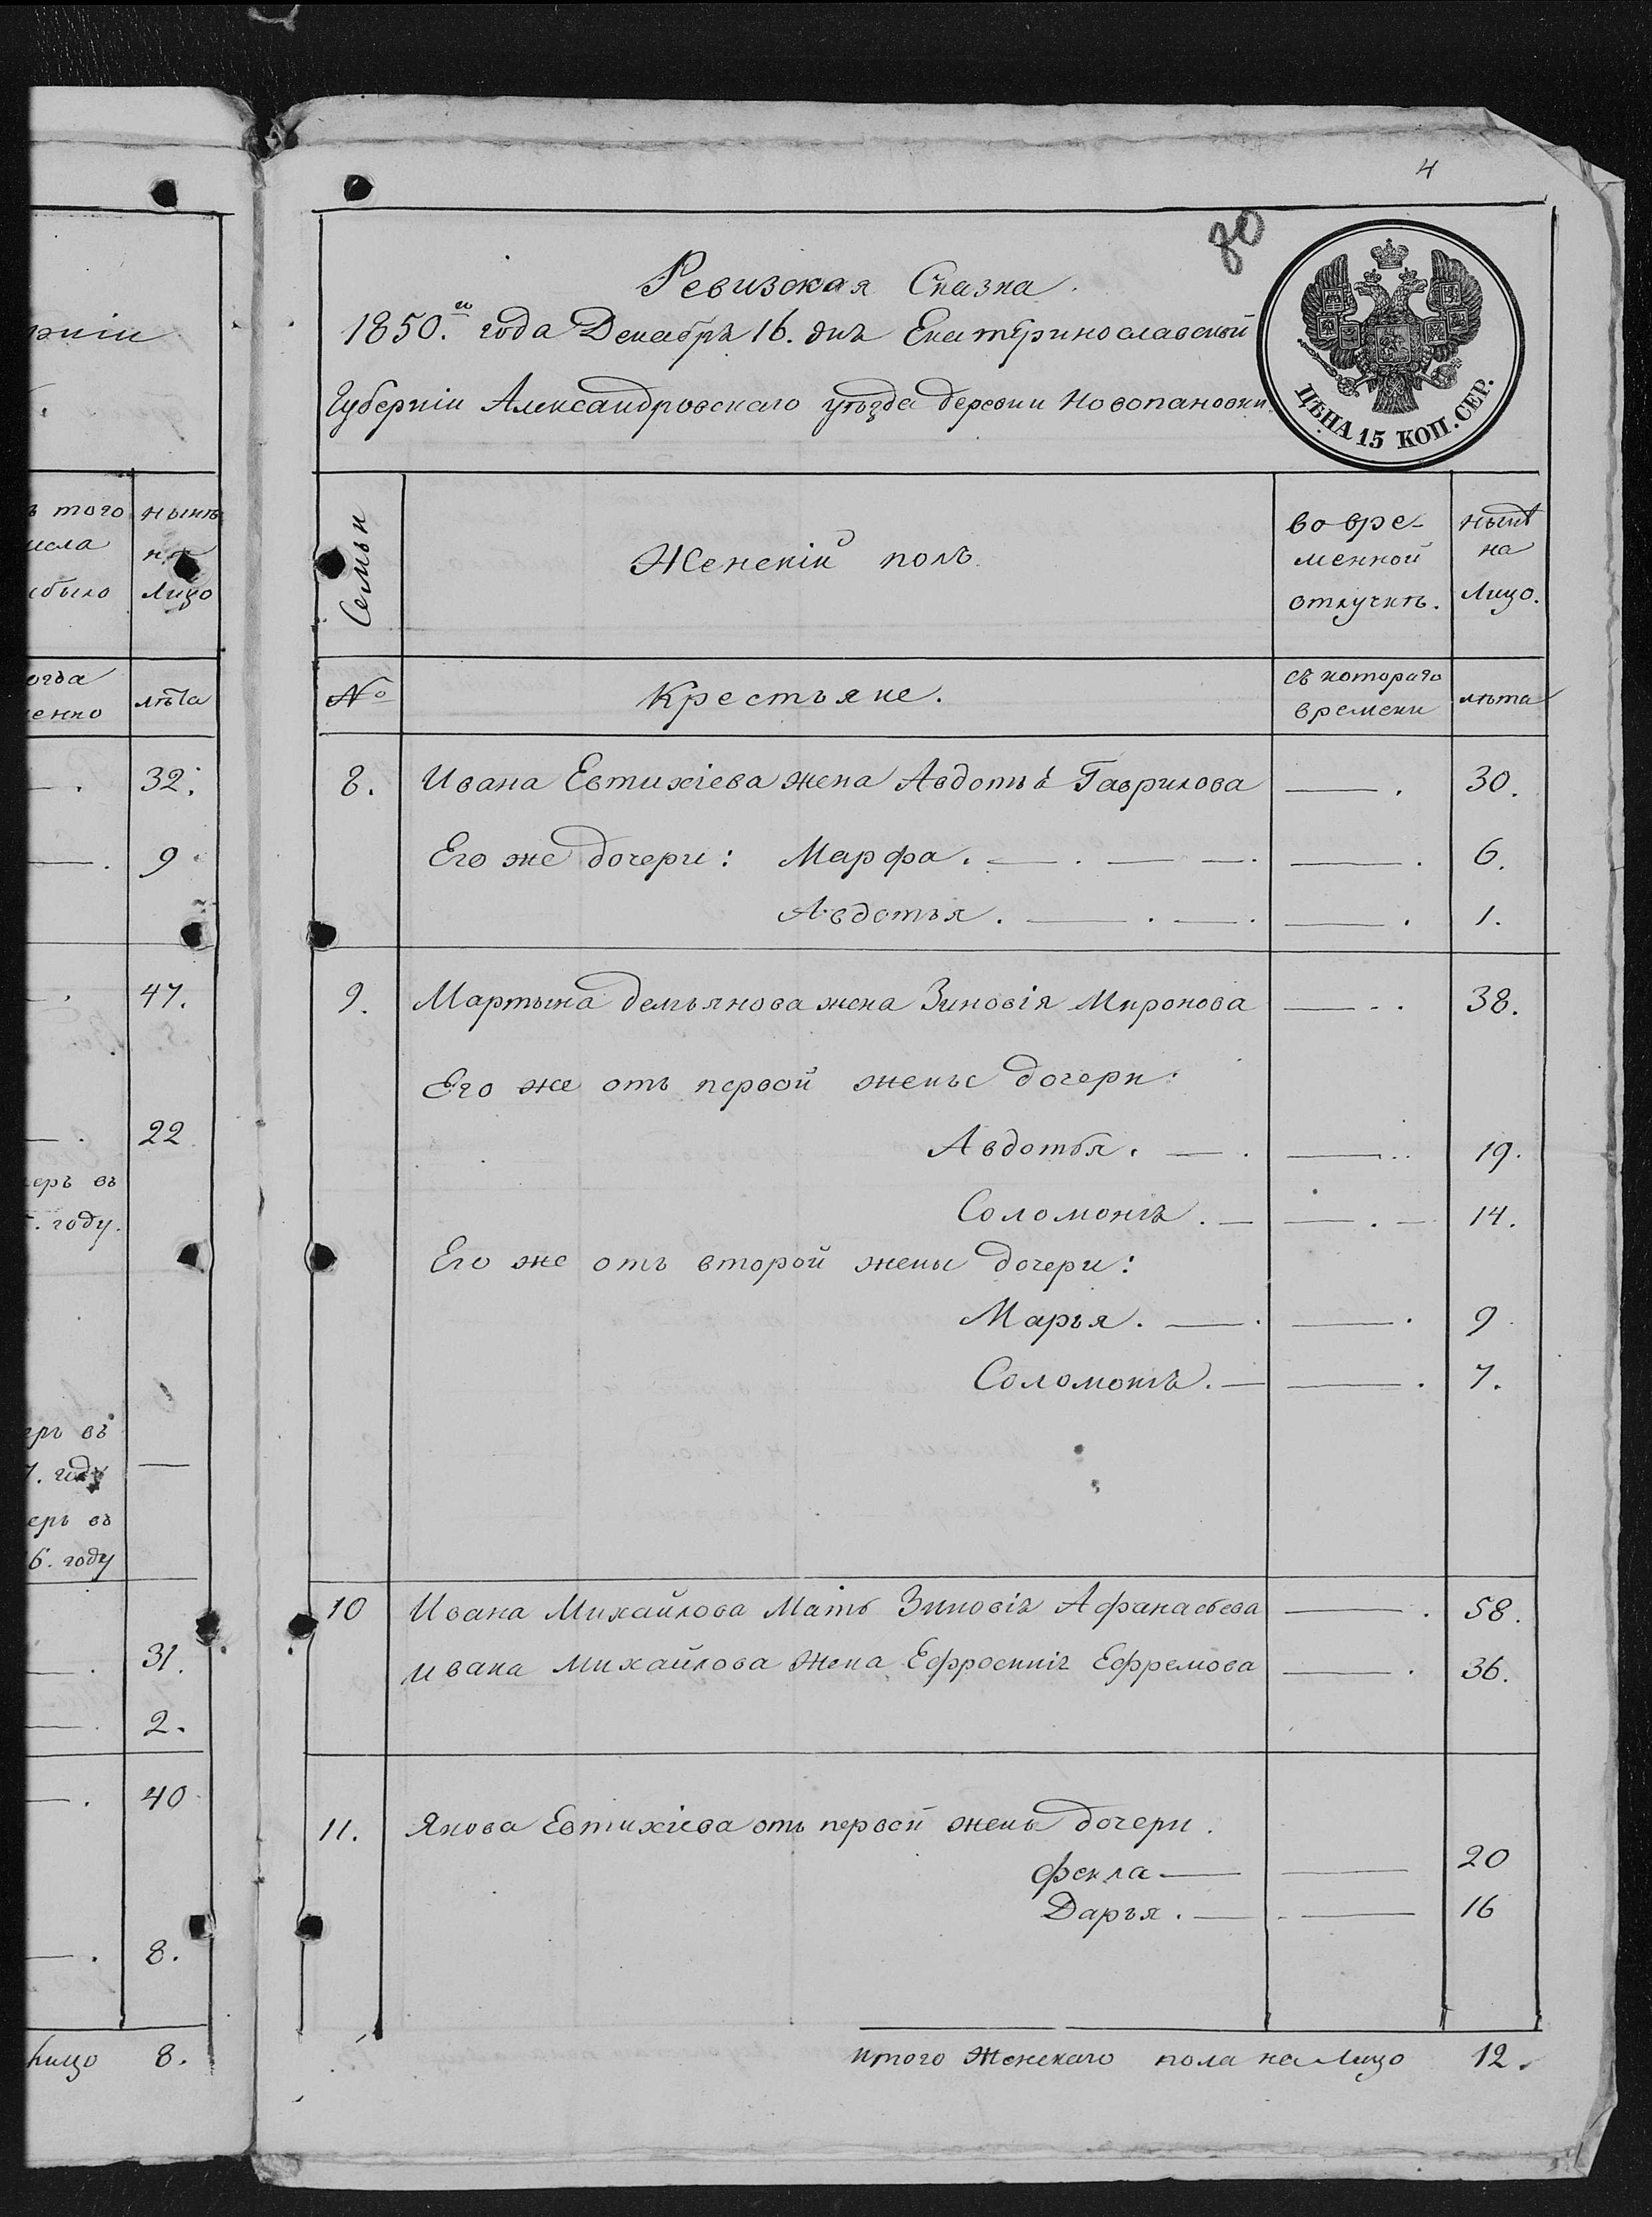 4
Ревизская Сказка.
1850.го года Декабря 16. дня Екатеринославской
Губерніи Александровскаго уѣзда деревни Новопановки
ЦѢНА 15 КОП. СЕР.
Семьи
Женскій полъ
во вре-
менной
отлучкѣ.
нынѣ
на
лицо.
№
Крестьяне.
съ котораго
времени
лѣта
8. Ивана Евтихіева жена Авдотья Гаврилова —. 30.
Его же дочери: Марфа. —. — —. —. 6.
Авдотья. —. —. —. 1.
9. Мартына Демьянова жена Зиновія Миронова —.. 38.
Его же отъ первой жены дочери:
Авдотья. —. —.. 19.
Соломонія. — —. — 14.
Его же отъ второй жены дочери:
Марья. —. —. 9
Соломонія. — —. 7.
10 Ивана Михайлова Мать Зиновія Афанасьева —. 58.
Ивана Михайлова Жена Ефросинія Ефремова —. 36.
11. Якова Евтихіева отъ первой жены дочери.
Фекла — — 20
Дарья. — — 16
Итого Женскаго пола на Лицо 12.
рніи
ъ того
исла
ыбыло
нынѣ
на
Лицо
огда
енно
лѣта
—. 32.
—. 9
—. 47.
—. 22
еръ въ
. году.
еръ въ
7. году —
еръ въ
6. году
—. 31.
—. 2.
—. 40
—. 8.
лицо 8.